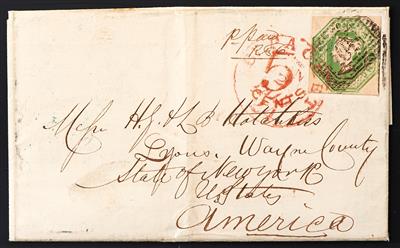 p paid
5
CENTS
Messrs H. G. & L. B. Hotchkiss
Lyons. Wayne County
State of New York
U States
America